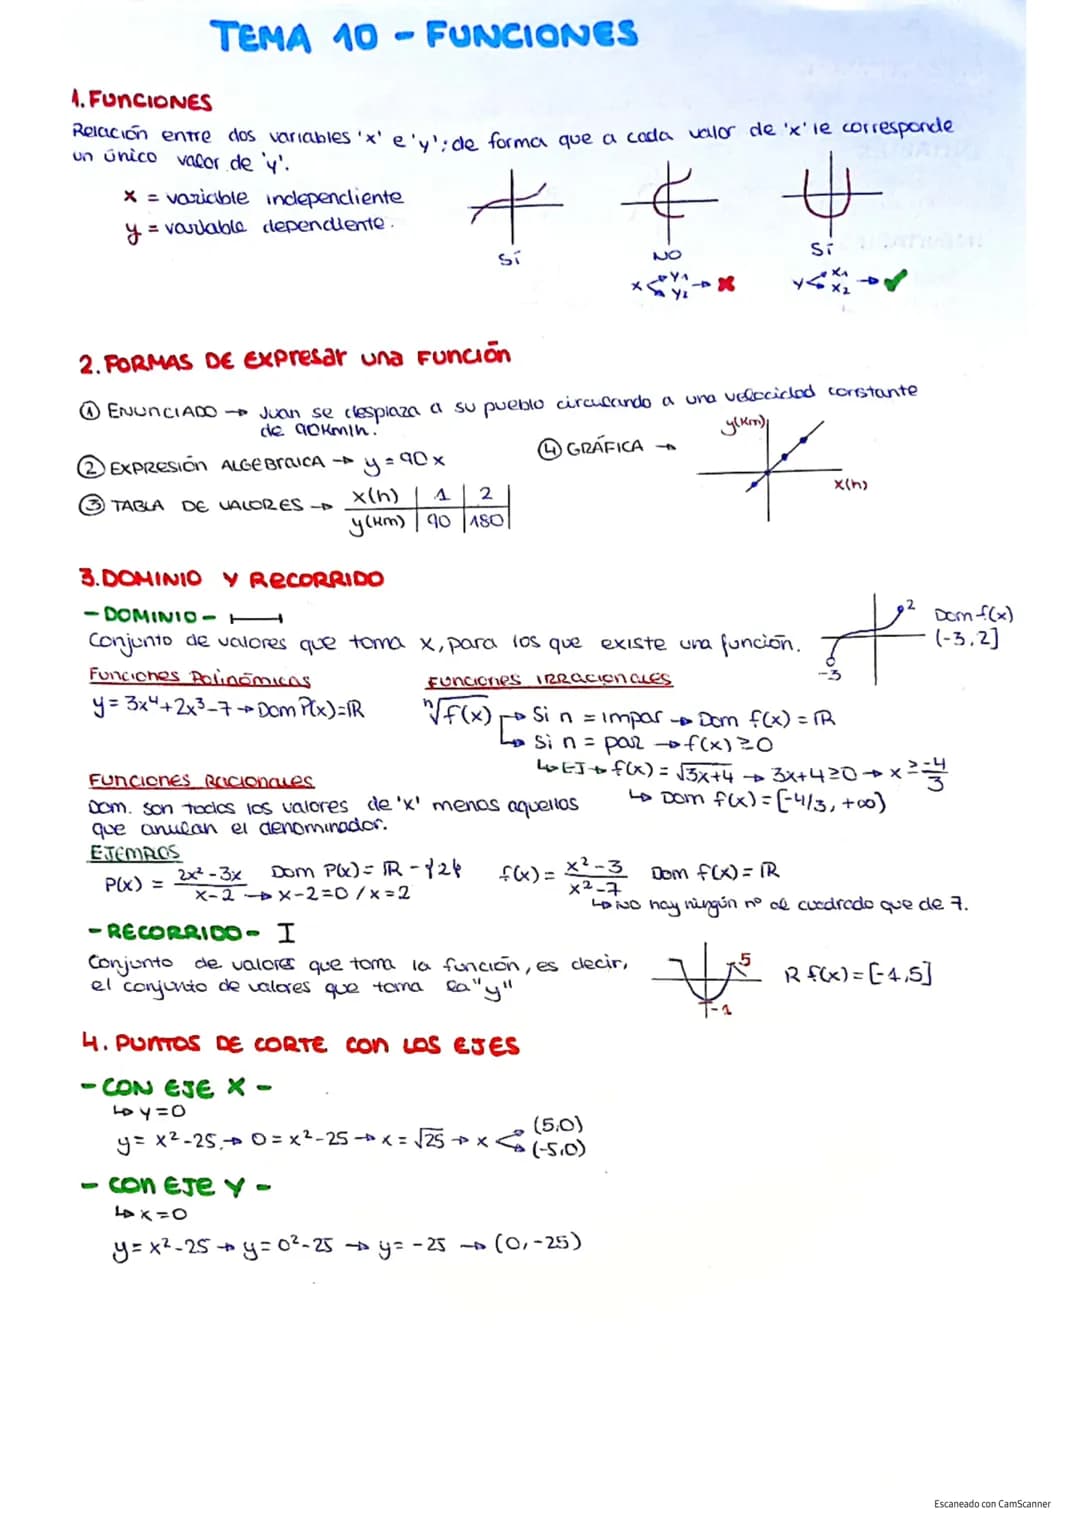 TEMA 10 - FUNCIONES
1. FUNCIONES
Relación entre dos variables 'x' e 'y'; de forma que a cada valor de 'x' le corresponde
un único valor de 'y'.
x = variable independiente
y = variable dependiente.
SÍ
NO
SÍ
x < y1 y2 → ✗
y < x1 x2 → ✓
2. FORMAS DE EXPRESAR UNA FUNCIÓN
① ENUNCIADO → Juan se desplaza a su pueblo circulando a una velocidad constante
de 90Km/h.
② EXPRESIÓN ALGEBRAICA → y = 90x
④ GRÁFICA →
y(Km)
x(h)
③ TABLA DE VALORES → x(h) | 1 | 2
y(Km) | 90 | 180
3. DOMINIO Y RECORRIDO
- DOMINIO -
Conjunto de valores que toma x, para los que existe una función.
2
-3
Dom f(x)
(-3,2]
Funciones Polinómicas
y = 3x⁴+2x³-7 → Dom P(x)=ℝ
FUNCIONES IRRACIONALES
ⁿ√f(x) → Si n = impar → Dom f(x) = ℝ
↳ Si n = par → f(x) ≥ 0
↳ EJ → f(x) = √3x+4 → 3x+4≥0 → x ≥ -4/3
↳ Dom f(x) = [-4/3, +∞)
Funciones Racionales
Dom. son todos los valores de 'x' menos aquellos
que anulan el denominador.
EJEMPLOS
P(x) = 2x²-3x / x-2 → x-2=0 / x=2
Dom P(x) = ℝ - {2}
f(x) = x²-3 / x²-7
Dom f(x) = ℝ
↳ NO hay ningún nº al cuadrado que de 7.
- RECORRIDO - I
Conjunto de valores que toma la función, es decir,
el conjunto de valores que toma la "y"
5
-1
R f(x) = [-1,5]
4. PUNTOS DE CORTE CON LOS EJES
- CON EJE X -
↳ y=0
y = x²-25 → 0 = x²-25 → x = √25 → x < (5,0) (-5,0)
- CON EJE Y -
↳ x=0
y = x²-25 → y = 0²-25 → y = -25 → (0,-25)
Escaneado con CamScanner